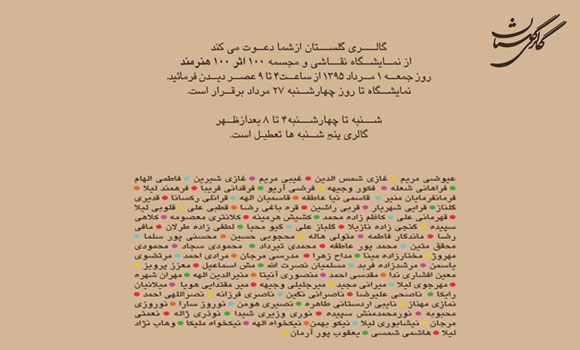 گالری گلستان
گالــری گلســتان ازشما دعـوت می کند
از نمـایشـگاه نقـاشی و مجسمه ۱۰۰ اثر ۱۰۰ هنرمند
روزجمعه ۱ مـرداد ۱۳۹۵ از ساعت۴ تا ۹ عصـر دیـدن فرمائید.
نمایشگاه تا روز چهارشنبه ۲۷ مرداد برقـرار است.
شـنبه تا چهارشـنبه۴ تا ۸ بعدازظهر
گالری پنج شنبه ها تعطیـل است.
عیوضی مریم • غازی شمس الدین • غیبی مریم • غازی شیرین • فاطمی الهام
• فراهانی شعله • فکور وجیهه • فرضی آریو • فرقدانی فریبا • فرهمند لیلا •
فرمانفرمایان منیر • قاسمی نیا عاطفه • قاسمیان الهه • قزانلی رکسانا • قدیری
گلناز • قرایی شهریار • قربی راشین • قره باغی رضا • قطبی علی • قلوبی لیلا
• قهرمانی علی • کاظم زاده محمد • کشیش هرمینه • کلانتری معصومه • کلاهی
سپیده • گنجی زاده نازیلا • گلباز علی • گیو محیا • لطفی زاده طرلان • مافی
رضا • ماندگار فاطمه • متولی هاله • محجوبی حسین • محسنی پور سلما •
محقق متین • محمد پور عاطفه • محمدی تیرداد • محمودی سجاد • محمودی
مهرزو • مختارزاده مینا • مداح زهرا • مدرسی مرجان • مرادی احمد • مرتضوی
یاسمن • مرشدزاده فرید • مسلمیان نصرت الله • مش اسماعیل • معزز پرویز •
معین افشاری ندا • مقدسی احمد • منصوری آزیتا • منیرالدین الهه • مهران شهره
• مهرجوی لیلا • میرانی مجید • میرجلیلی وجیهه • میر مقتدایی هویا • میلانیان
رایکا • ناصحی علیرضا • ناصرانی نگین • ناصری فرزانه • نصراللهی احمد •
نمازی مهناز • نایبی اردستانی طاهره • نصیری هومن • نوروز سارا • نوروزی
محبوبه • نورمحمدمنش سپیده • نوری وزیری شیدا • نوذری ژاله • نعمتی
مرجان • نیشابوری لیلا • نیکو بهمن • نیکخواه الهه • نیکخواه ملیکا • وهاب نژاد
لیلا • هاشمی شمسی • یعقوب پور آرمان •